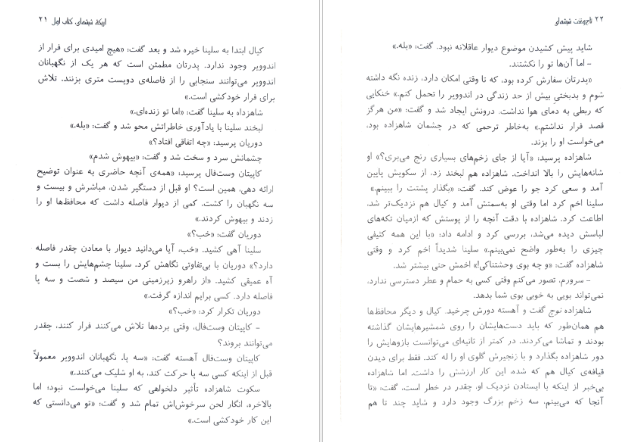 ۲۲ تاج‌وتخت شیشه‌ای
شاید پیش کشیدن موضوع دیوار عاقلانه نبود. گفت: «بله.»
– اما آن‌ها تو را نکشتند.
«پدرتان سفارش کرده بود، که تا وقتی امکان دارد، زنده نگه داشته
شوم و بدبختی بیش از حد زندگی در اندوویر را تحمل کنم.» خنکایی
که ربطی به دمای هوا نداشت، درونش ایجاد شد و گفت: «من هرگز
قصد فرار نداشتم.» به‌خاطر ترحمی که در چشمان شاهزاده بود،
می‌خواست او را بزند.
شاهزاده پرسید: «آیا از جای زخم‌های بسیاری رنج می‌بری؟» او
شانه‌هایش را بالا انداخت. شاهزاده هم لبخند زد. از سکویش پایین
آمد و سعی کرد جو را عوض کند. گفت: «بگذار پشتت را ببینم.»
سلینا اخم کرد اما وقتی او به‌سمتش آمد و کیال هم نزدیک‌تر شد،
اطاعت کرد. شاهزاده با دقت آنچه را از پوستش که ازمیان تکه‌های
لباسش دیده می‌شد، بررسی کرد و ادامه داد: «با این همه کثیفی
چیزی را به‌طور واضح نمی‌بینم.» سلینا شدیداً اخم کرد و وقتی
شاهزاده گفت: «و چه بوی وحشتناکی!» اخمش حتی بیشتر شد.
– سرورم، تصور می‌کنم وقتی کسی به حمام و عطر دسترسی ندارد،
نمی‌تواند بویی به خوبی بوی شما بدهد.
شاهزاده نوچ گفت و آهسته دورش چرخید. کیال و دیگر محافظ‌ها
هم همان‌طور که باید دست‌هایشان را روی شمشیرهایشان گذاشته
بودند و تماشا می‌کردند. در کمتر از ثانیه‌ای می‌توانست بازوهایش را
دور شاهزاده بگذارد و با زنجیرش گلوی او را له کند. فقط برای دیدن
قیافه‌ی کیال هم که شده، این کار ارزشش را داشت. اما شاهزاده
بی‌خبر از اینکه با ایستادن نزدیک او، چقدر در خطر است، گفت: «تا
آنجا که می‌بینم، سه زخم بزرگ وجود دارد و شاید چند تا هم
اریکه شیشه‌ای، کتاب اول ۲۱
کیال ابتدا به سلینا خیره شد و بعد گفت: «هیچ امیدی برای فرار از
اندوویر وجود ندارد. پدرتان مطمئن است که هر یک از نگهبانان
اندوویر می‌توانند سنجابی را از فاصله‌ی دویست متری بزنند. تلاش
برای فرار خودکشی است.»
شاهزداه به سلینا گفت: «اما تو زنده‌ای.»
لبخند سلینا با یادآوری خاطراتش محو شد و گفت: «بله.»
دوریان پرسید: «چه اتفاقی افتاد؟»
چشمانش سرد و سخت شد و گفت: «بیهوش شدم.»
کاپیتان وست‌فال پرسید: «همه‌ی آنچه حاضری به عنوان توضیح
ارائه دهی، همین است؟ او قبل از دستگیر شدن، مباشرش و بیست و
سه نگهبان را کشت. کمی از دیوار فاصله داشت که محافظ‌ها او را
زدند و بیهوش کردند.»
دوریان گفت: «خب؟»
سلینا آهی کشید. «خب، آیا می‌دانید دیوار با معادن چقدر فاصله
دارد؟» دوریان با بی‌تفاوتی نگاهش کرد. سلینا چشم‌هایش را بست و
آه عمیقی کشید. «از راهرو زیرزمینی من سیصد و شصت و سه پا
فاصله دارد. کسی برایم اندازه گرفت.»
دوریان تکرار کرد: «خب؟»
– کاپیتان وست‌فال، وقتی برده‌ها تلاش می‌کنند فرار کنند، چقدر
می‌توانند بروند؟
کاپیتان وست‌فال آهسته گفت: «سه پا. نگهبانان اندوویر معمولاً
قبل از اینکه کسی سه پا حرکت کند، به او شلیک می‌کنند.»
سکوت شاهزاده تأثیر دلخواهی که سلینا می‌خواست نبود؛ اما
بالاخره، انگار لحن سرخوش‌اش تمام شد و گفت: «تو می‌دانستی که
این کار خودکشی است.»